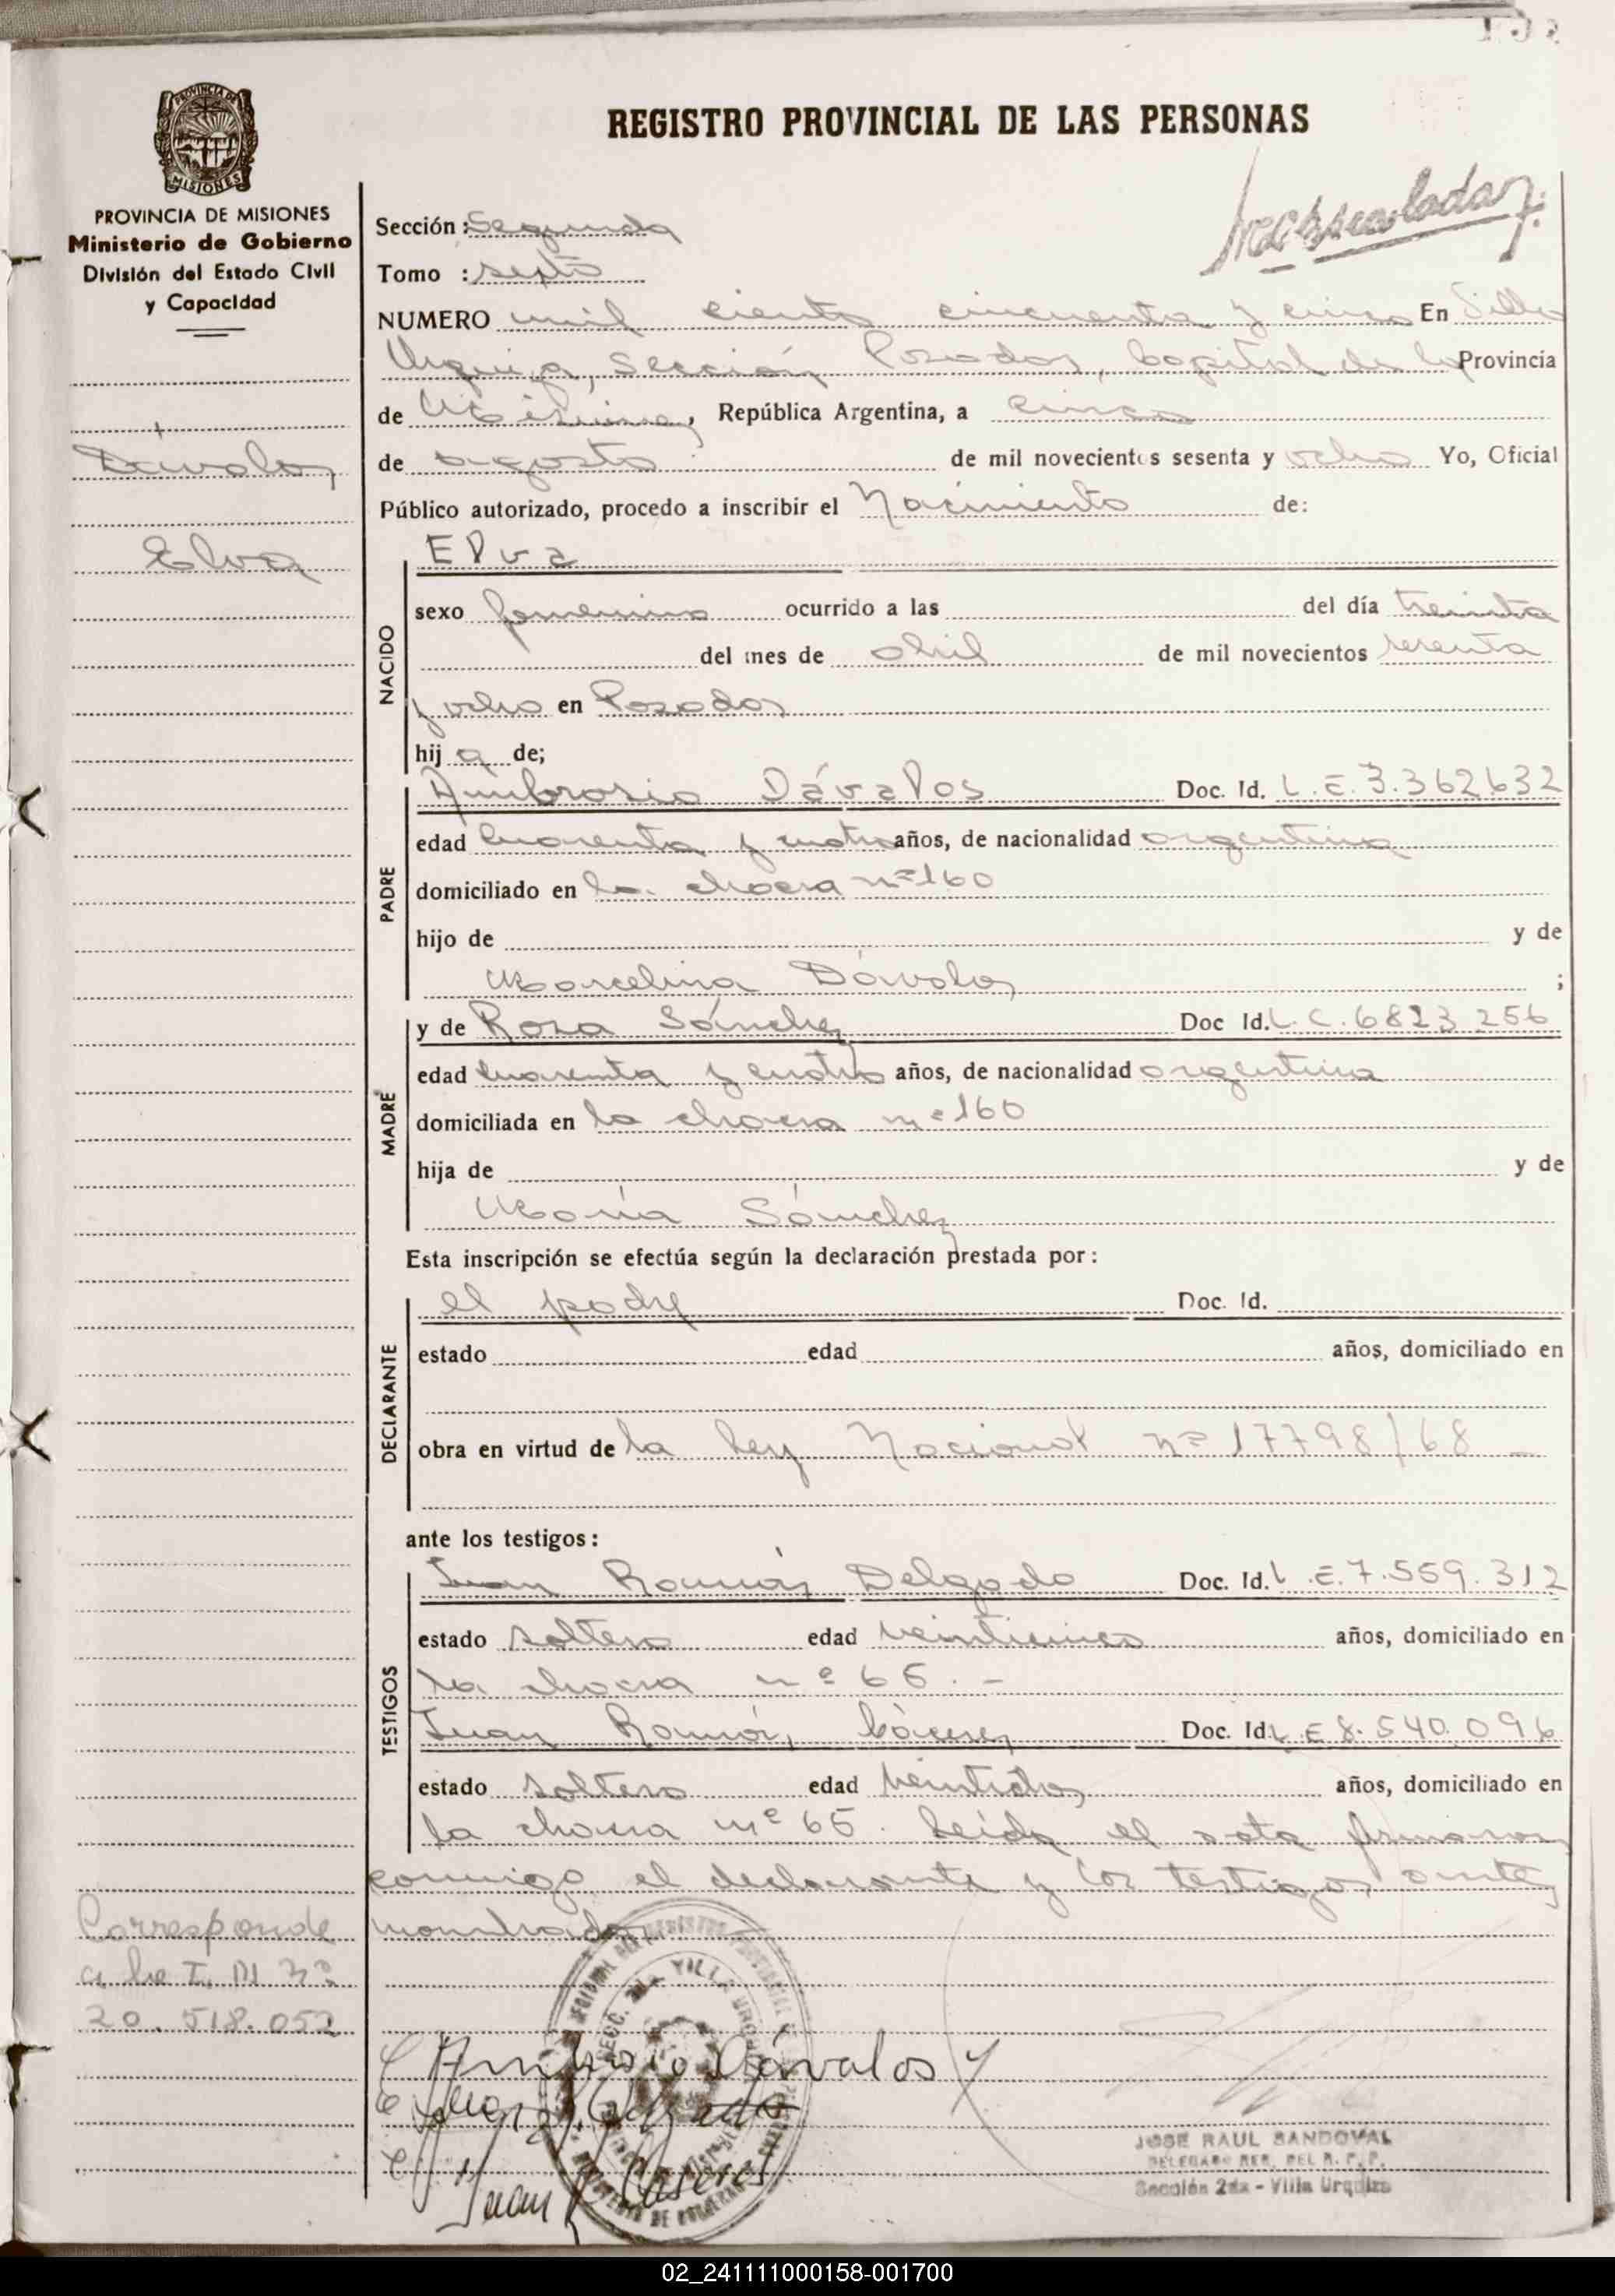 REGISTRO PROVINCIAL DE LAS PERSONAS
PROVINCIA DE
MISIONES
PROVINCIA DE MISIONES
Ministerio de Gobierno
División del Estado Civil
y Capacidad
Sección: Segunda
Tomo : sexto
NUMERO mil ciento cincuenta y cinco En Villa
Urquiza, Sección Posadas, Capital de la Provincia
de Misiones, República Argentina, a cinco
de agosto de mil novecientos sesenta y ocho Yo, Oficial
Público autorizado, procedo a inscribir el Nacimiento de:
Dávalos
Elva
NACIDO
Elva
sexo femenino ocurrido a las del día treinta
del mes de abril de mil novecientos sesenta
y ocho en Posadas
hij a de;
PADRE
Ambrosio Dávalos Doc. Id. L.E.3.362632
edad cuarenta y cuatro años, de nacionalidad argentina
domiciliado en la chacra nº160
hijo de y de
Marcelina Dávalos ;
MADRE
y de Rosa Sánchez Doc Id. L.C.6823256
edad cuarenta y cuatro años, de nacionalidad argentina
domiciliada en la chacra nº160
hija de y de
María Sánchez
Esta inscripción se efectúa según la declaración prestada por:
DECLARANTE
el padre Doc. Id.
estado edad años, domiciliado en
obra en virtud de la ley Nacional nº17798/68 -
ante los testigos:
TESTIGOS
Juan Ramón Delgado Doc. Id. L.E.7.559.312
estado soltero edad veinticinco años, domiciliado en
la chacra nº 65. -
Juan Ramón Cáceres Doc. Id. L.E 8.540.096
estado soltero edad años, domiciliado en
la chacra nº 65. Leída el acta firmaron
conmigo el declarante y los testigos antes
nombrados
Corresponde
a la I. M Nº
20.518.052
Ambrosio Dávalos
Juan R Caseres
JOSE RAUL SANDOVAL
DELEGADO DEL R. P. P.
Sección 2da - Villa Urquiza
02_241111000158-001700